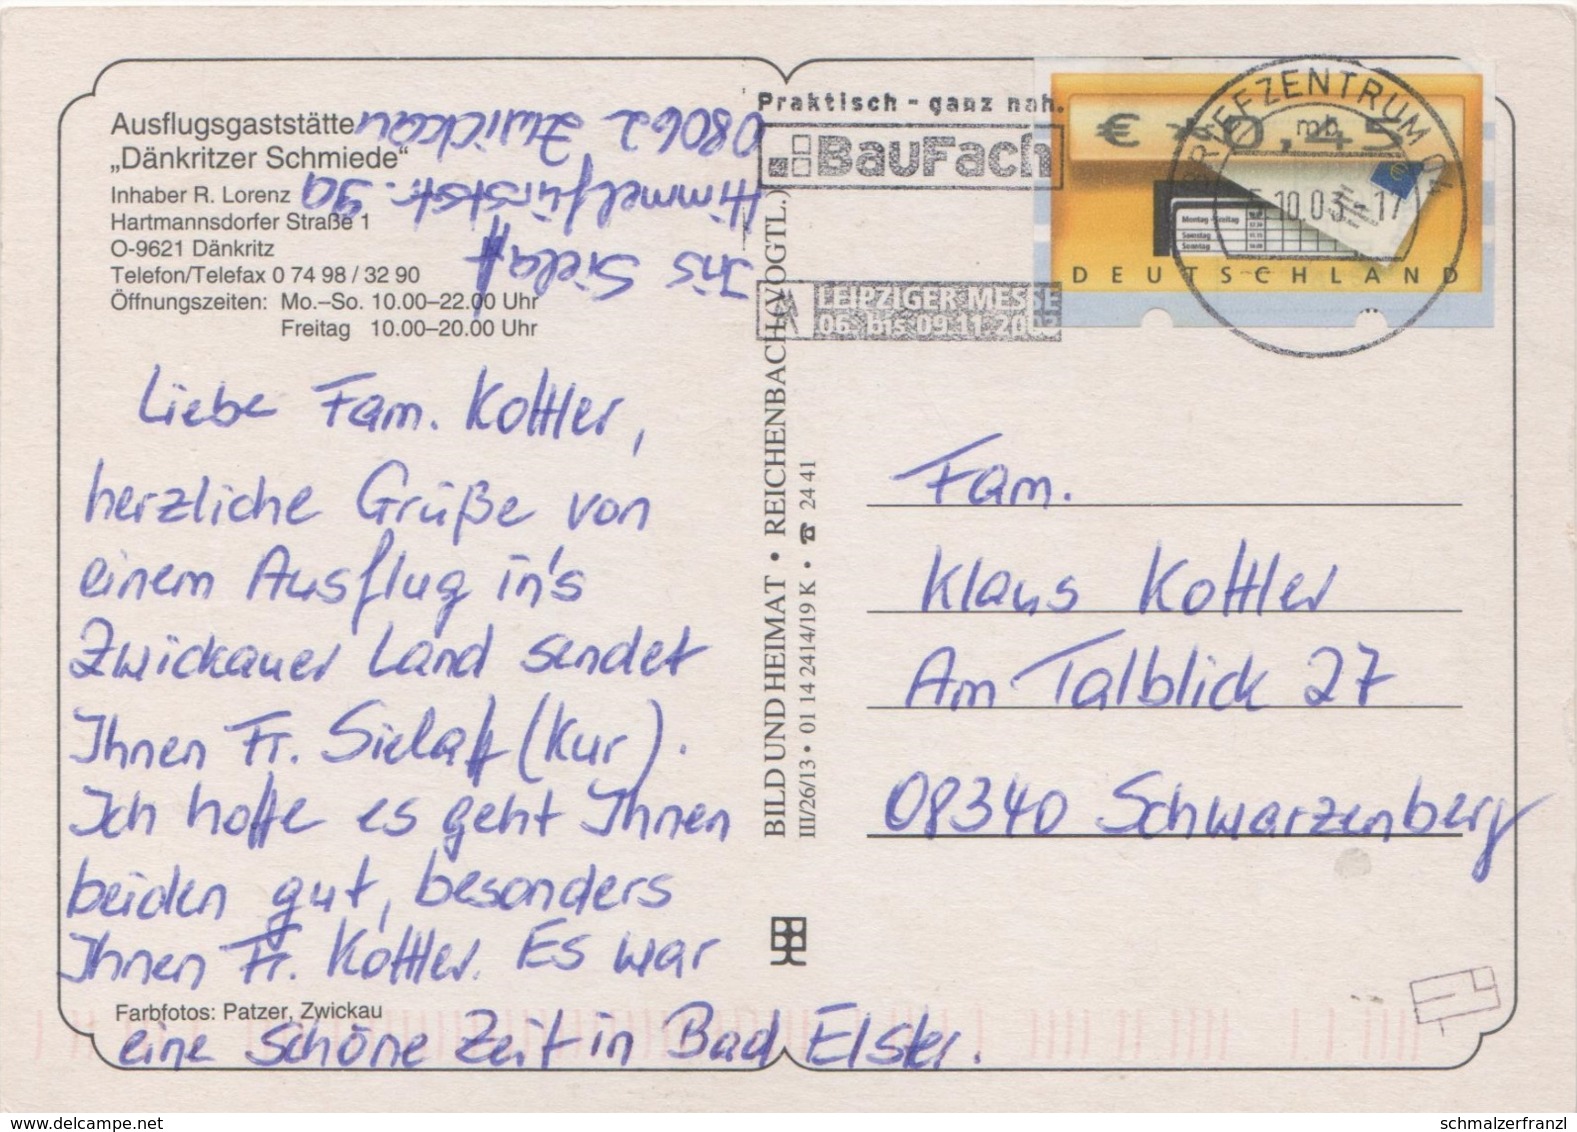 Ausflugsgaststätte
„Dänkritzer Schmiede“
Inhaber R. Lorenz
Hartmannsdorfer Straße 1
O-9621 Dänkritz
Telefon/Telefax 0 74 98 / 32 90
Öffnungszeiten: Mo.–So. 10.00–22.00 Uhr
Freitag 10.00–20.00 Uhr
Iris Sielaff
Himmelfürststr. 9a
08062 Zwickau
Liebe Fam. Kottler,
herzliche Grüße von
einem Ausflug in's
Zwickauer Land sendet
Ihnen Fr. Sielaff (Kur).
Ich hoffe es geht Ihnen
beiden gut, besonders
Ihnen Fr. Kottler. Es war
eine schöne Zeit in Bad Elster.
Farbfotos: Patzer, Zwickau
BILD UND HEIMAT • REICHENBACH (VOGTL.)
III/26/13 • 01 14 2414/19 K • ☎ 24 41
Praktisch - ganz nah.
BauFach
LEIPZIGER MESSE
06. bis 09.11.2003
BRIEFZENTRUM
mb
10.03-17
€ *0,45
Montag - Freitag
Samstag
Sonntag
DEUTSCHLAND
Fam.
Klaus Kottler
Am Talblick 27
08340 Schwarzenberg
schmalzerfranzl
www.delcampe.net